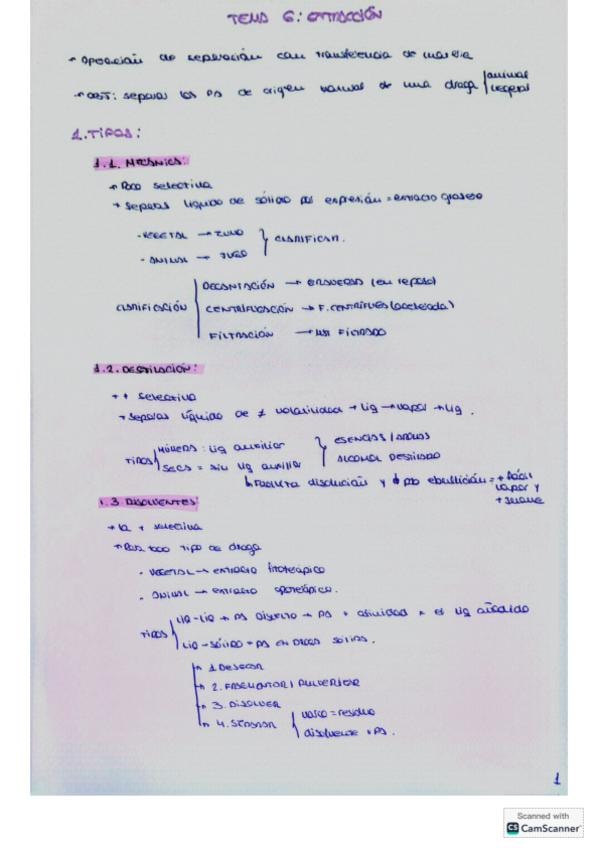 TEMA 6: EXTRACCIÓN
→ Operación de separación con transferencia de materia
→ OBJ: separar los PA de origen natural de una droga | animal
vegetal
1. TIPOS:
1.1. MECÁNICA:
→ Poco selectiva
→ Separas líquido de sólido por expresión = extracto graso
- VEGETAL → ZUMO } CLARIFICAN.
- ANIMAL → JUGO
CLARIFICACIÓN
DECANTACIÓN → GRAVEDAD (en reposo)
CENTRIFUGACIÓN → F. CENTRÍFUGA (acelerada)
FILTRACIÓN → FILTRADO
1.2. DESTILACIÓN:
→ + selectiva
→ Separas líquido de ≠ volatilidad → Liq → vapor → Liq.
TIPOS
HÚMEDAS: Liq auxiliar
SECA = sin Liq auxiliar
ESENCIAS /
ALCOHOL DESTILADO
↳ Facilita disolución y ↓ pto ebullición = + fácil
vapor y
+ suave
1.3 DISOLVENTES:
→ la + selectiva
→ Para todo tipo de droga
- VEGETAL → extracto fitoterápico
- ANIMAL → extracto opoterápico.
TIPOS
LIQ - LIQ → PA DISUELTO → PA + afinidad x el Liq añadido
LIQ - SÓLIDO → PA EN DROGA SÓLIDA.
→ 1. DESECAR
→ 2. FRAGMENTAR / PULVERIZAR
→ 3. DISOLVER
→ 4. SEPARAR
= residuo
disolvente + PA.
1
Scanned with
CS CamScanner